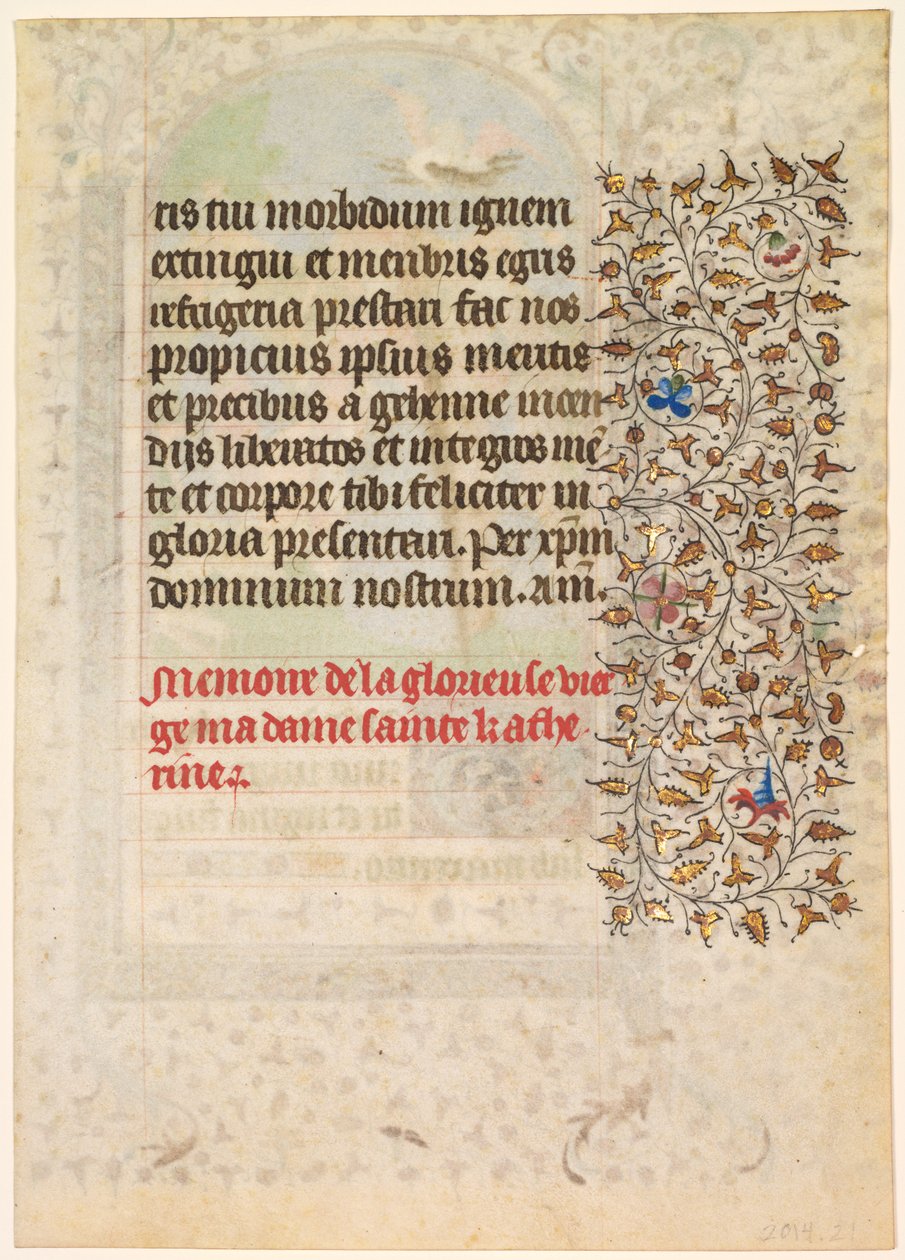 ris tui morbidum ignem
extingui et menbris egris
refrigeria prestari fac nos
propicius ipsius meritis
et precibus a gehenne incen
dijs liberatos et integros mē
te et corpore tibi feliciter in
gloria presentari. Per xp̄m
dominum nostrum. Am̄.
Memoire de la glorieuse vier
ge ma dame sainte kathe-
rine.
2014.21